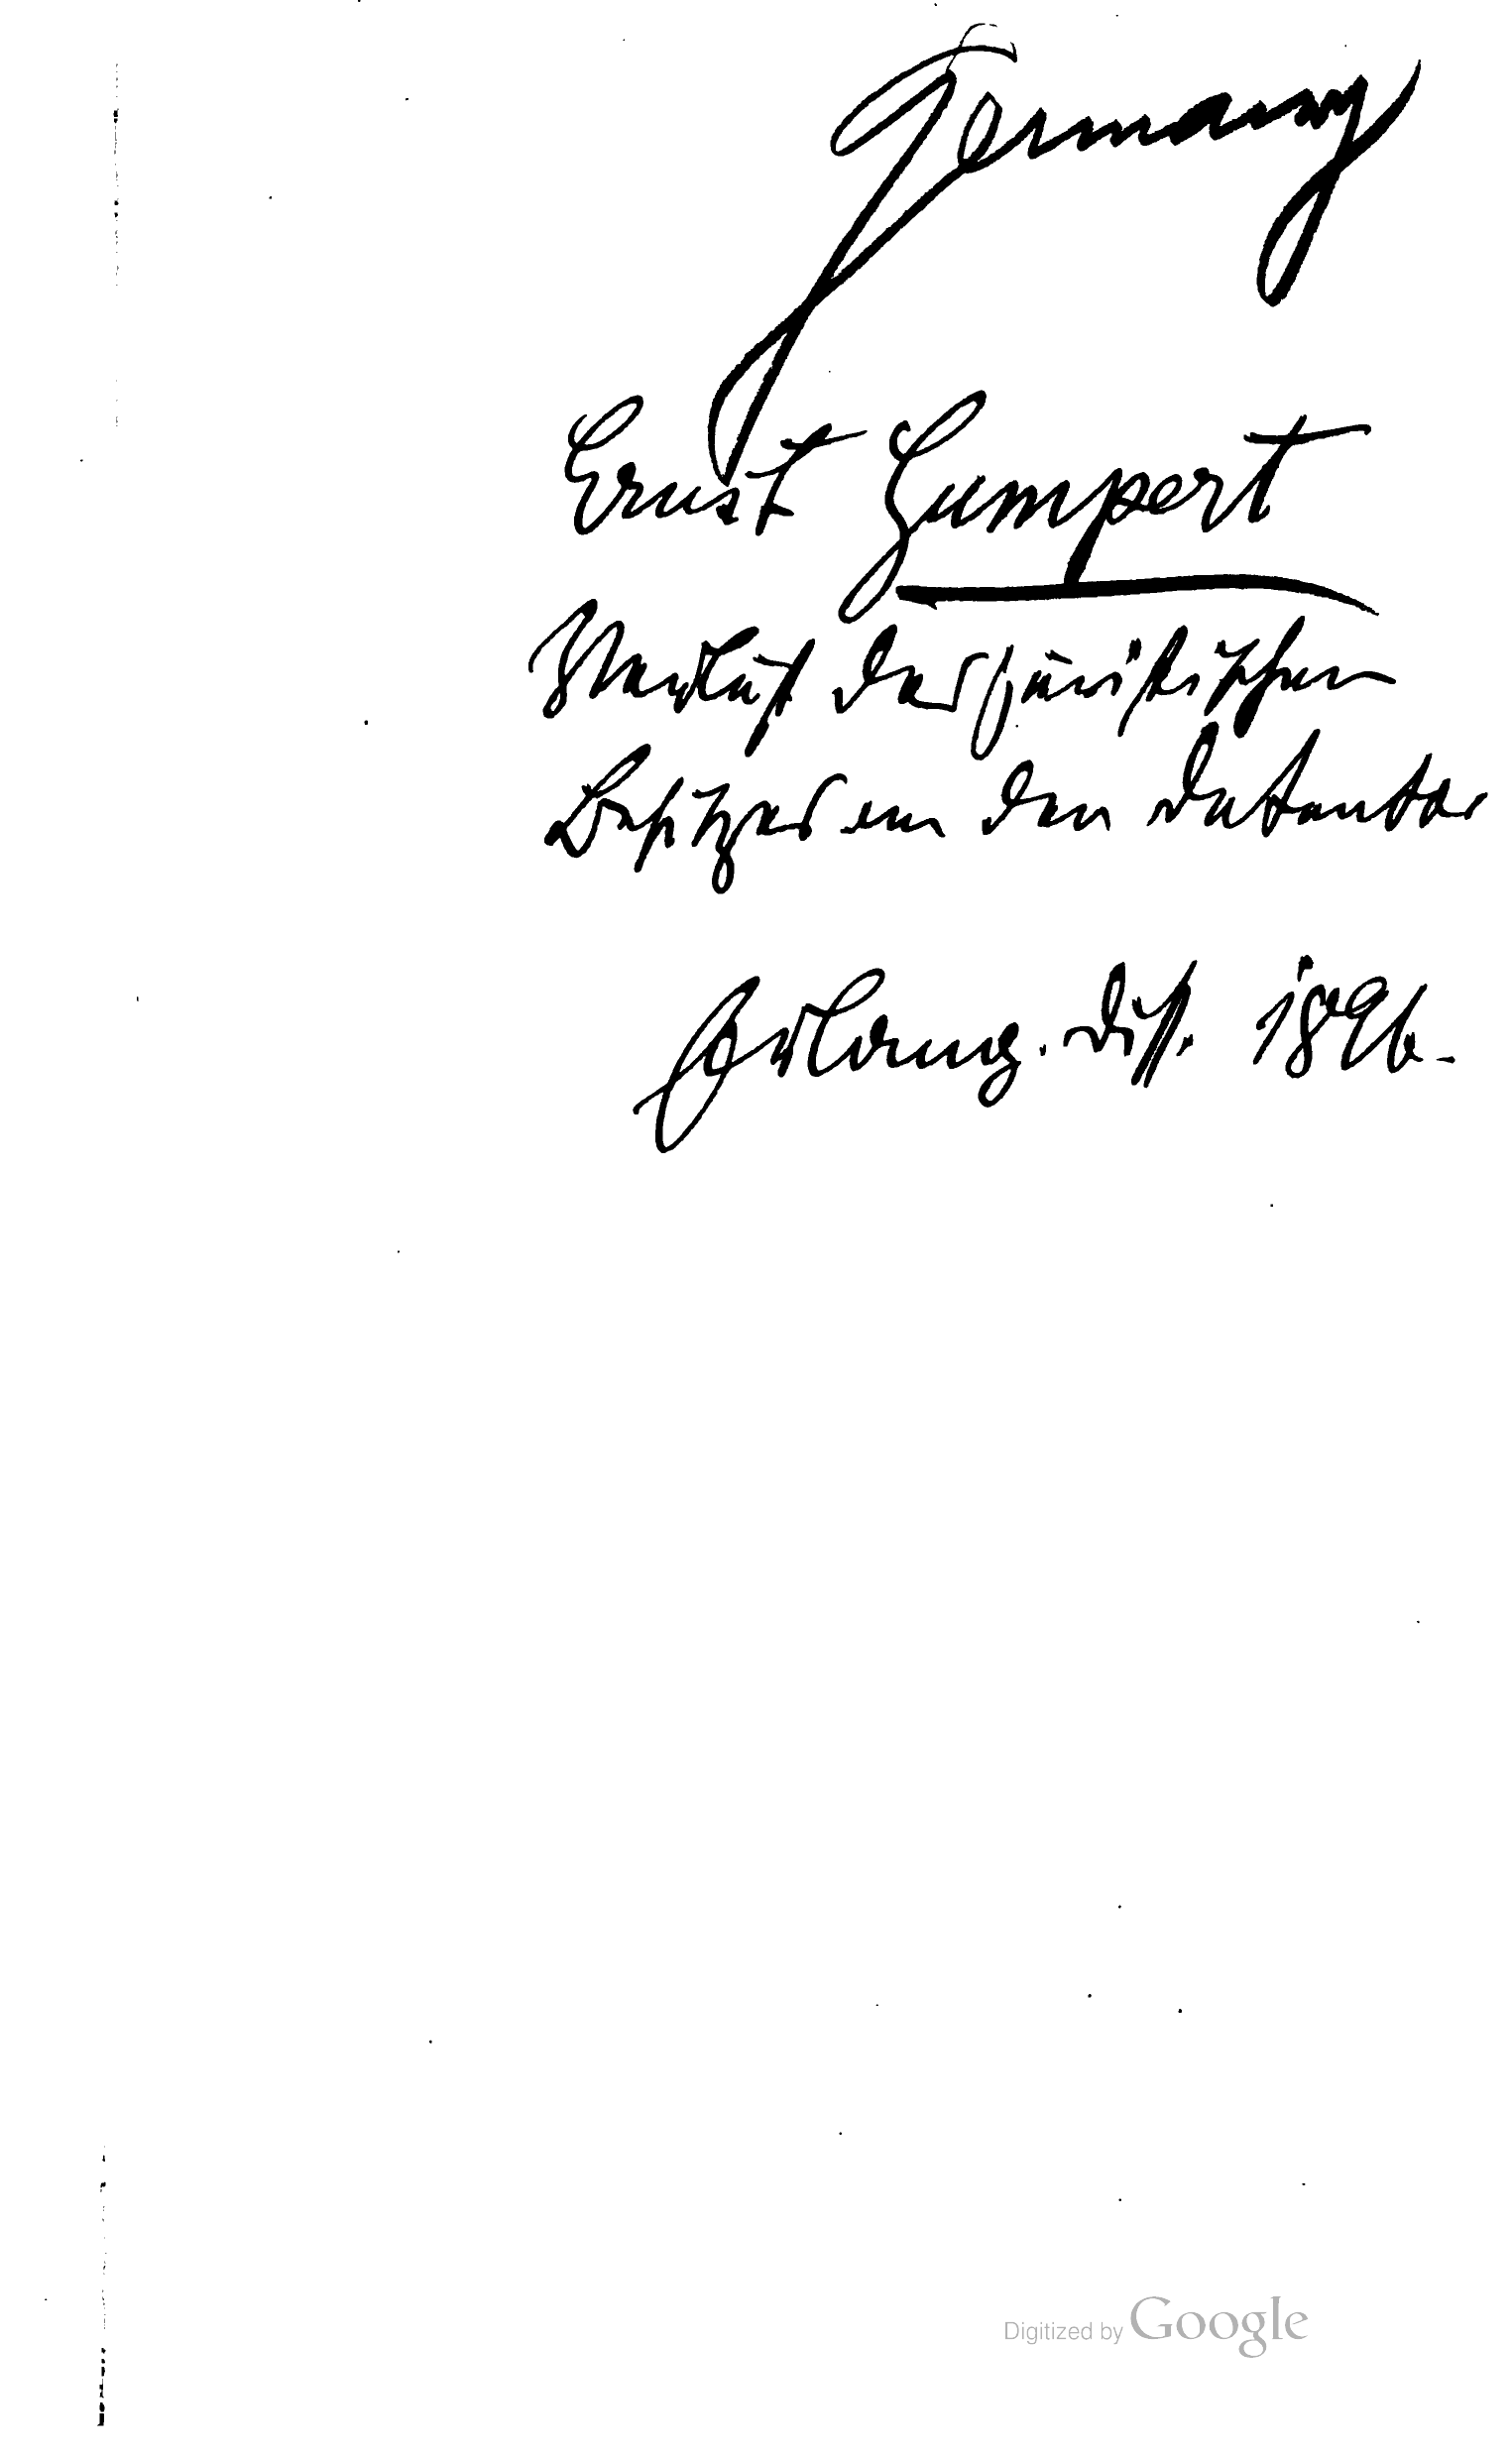 Germany
Ernst Gumpert
Verlust des juristischen
Besitzes an den Detentor
Erlang. Diss. 1896.
Digitized by Google